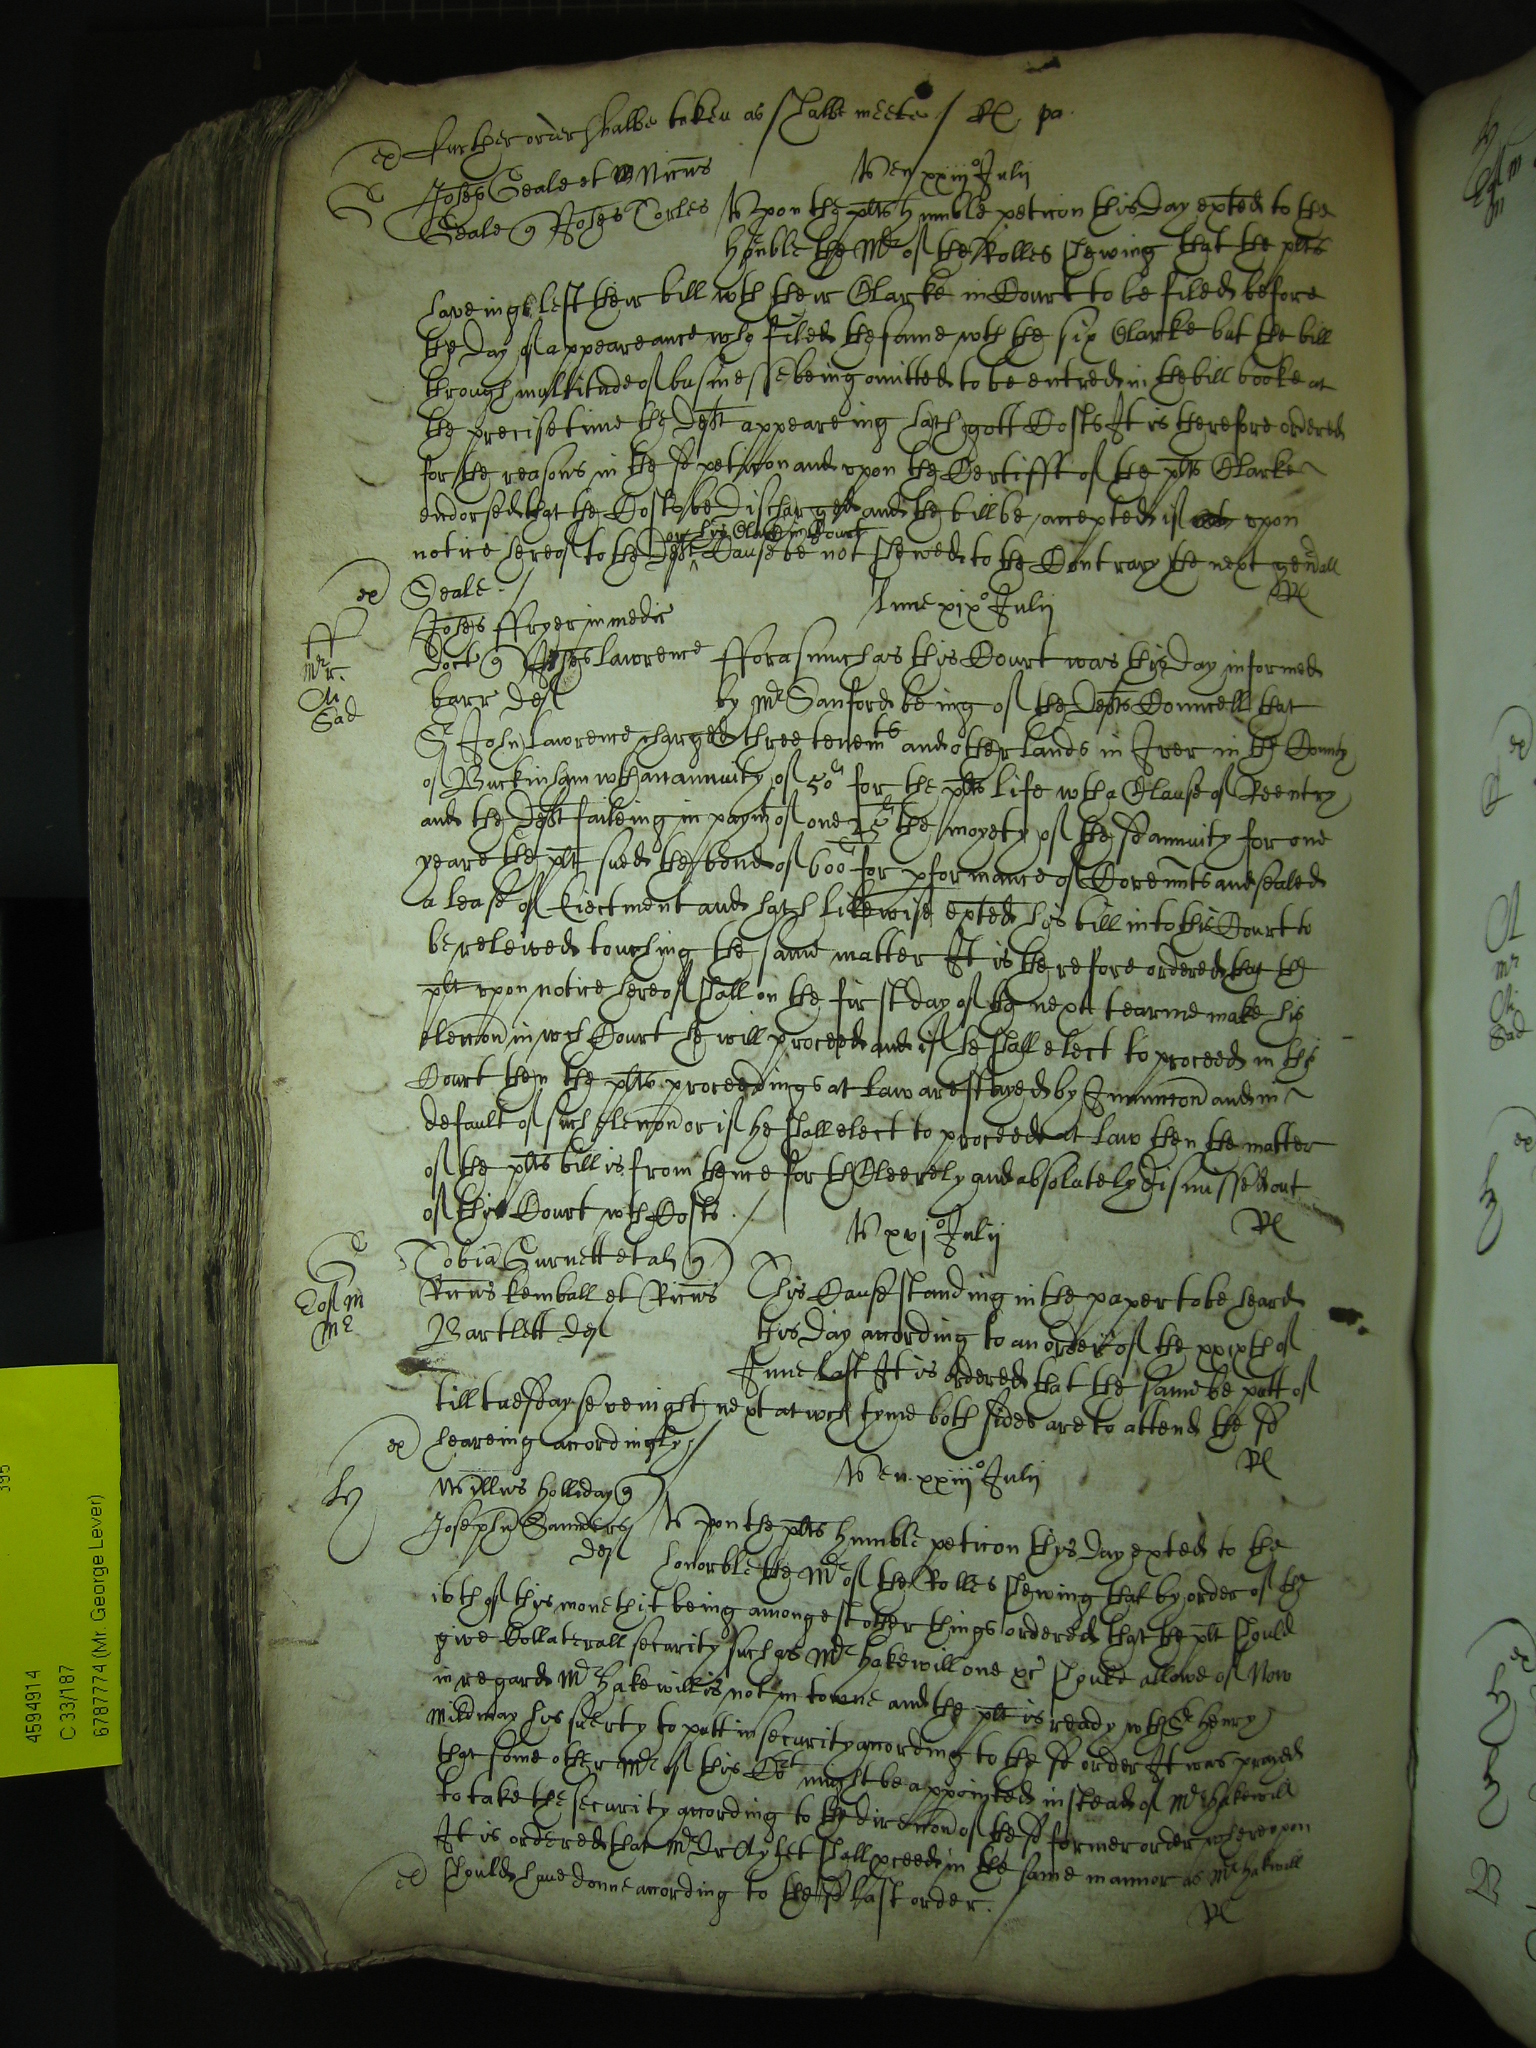 ex further order shalbe taken as shalbe meete / Rl. pa.
Ven xxiij° Julij
Joseph Seale et Nicus
Seale q Johes Corles Upon the plts humble peticon this day exted to the
honble the Mr of the Rolles shewing that the plts
haveinge left their bill wth their Clarke in Court to be filed before
the day of appeareance who filed the same wth the six Clarke but the bill
through multitude of businesse being omitted to be entred in the bill booke at
the precise time the Deft appeareing hath gott Costs It is therefore ordered
for the reasons in the sd peticon and upon the Certifft of the plts Clarke
endorsed that the Costs be discharged and the bill be accepted if upon
or his Clarke in Court
notice hereof to the Deft Cause be not shewed to the Contrary the next genall
ex Seale. Rl
Lune xix° Julij
ff Johes ffryer in medic
Mr
Doct q Johes Lawrence fforasmuch as this Court was this day informed
Sad
barr Def by Mr Sanford being of the Defts Councell that
Sr John Lawrence charged three tenemts and other lands in Iver in the County
of Buckinham wth an annuity of 50li for the plts life wth a Clause of Reentry
and the Deft faileing in paymt of one 25li the moyety of the sd annuity for one
yeare the plt sued the bond of 600li for pformance of Covennts and sealed
a lease of Eiectment and hath likewise exted his bill into this Court to
be releived touching the same matter It is therefore ordered that the
plt upon notice hereof shall on the first day of the next tearme make his
eleccon in wch Court he will proceed and if he shall elect to proceed in this
Court then the plts proceedings at law are stayed by Iniunccon and in
default of such eleccon or if he shall elect to proceed at law then the matter
of the plts bill is from thence forth Cleerely and absolutely dismissed out
of this Court wth Costs. / Rl
xvj° Julij
Tobia Gurnett et al q
Ricus Kemball et Ricus This Cause standing in the paper to be heard
Mr
Bartlett Def this day according to an order of the xxixth of
June last It is ordered that the same be putt of
till tuesday sevenight next at wch tyme both sides are to attend the sd
ex heareing accordingly / Rl
Ven. xxiij° Julij
hy Willus Holliday q
Josephu Saunders Upon the plts humble peticon this day exted to the
Def honorble the Mr of the Rolles shewing that by order of the
16th of this moneth it being amongest other things ordered that the plt should
give Collaterall security such as Mr Hakewill one xc should allowe of Now
in regard Mr Hakewill is not in towne and the plt is ready wth Sr Henry
Mildmay his suerty to putt in security according to the sd order It was prayed
that some other Mr of this Cort might be appointed in stead of Mr Hakewill
to take the security according to the direccon of the sd former order whereupon
It is ordered that Mr Dr Aylet shall pceed in the same mannor as Mr Hakewill
ex should have donne according to the sd last order. Rl
4594914
C 33/187
6787774 (Mr. George Lever)
395